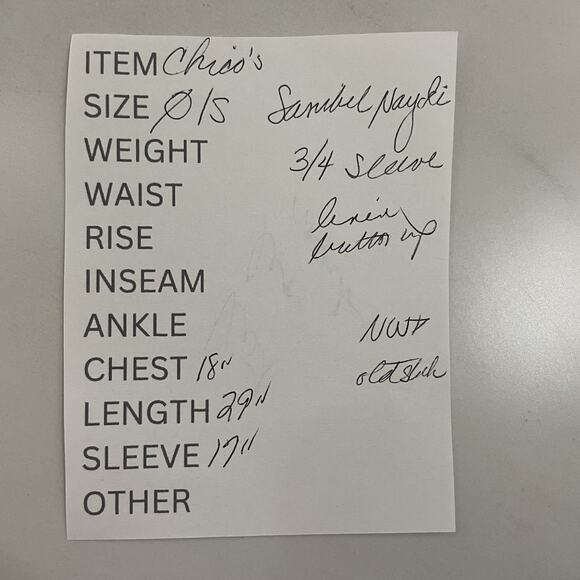 ITEM Chico's
SIZE Ø/S Sanibel
WEIGHT 3/4 Sleeve
WAIST linen
RISE button up
INSEAM
ANKLE NWT
CHEST 18"
LENGTH 29"
SLEEVE 17"
OTHER